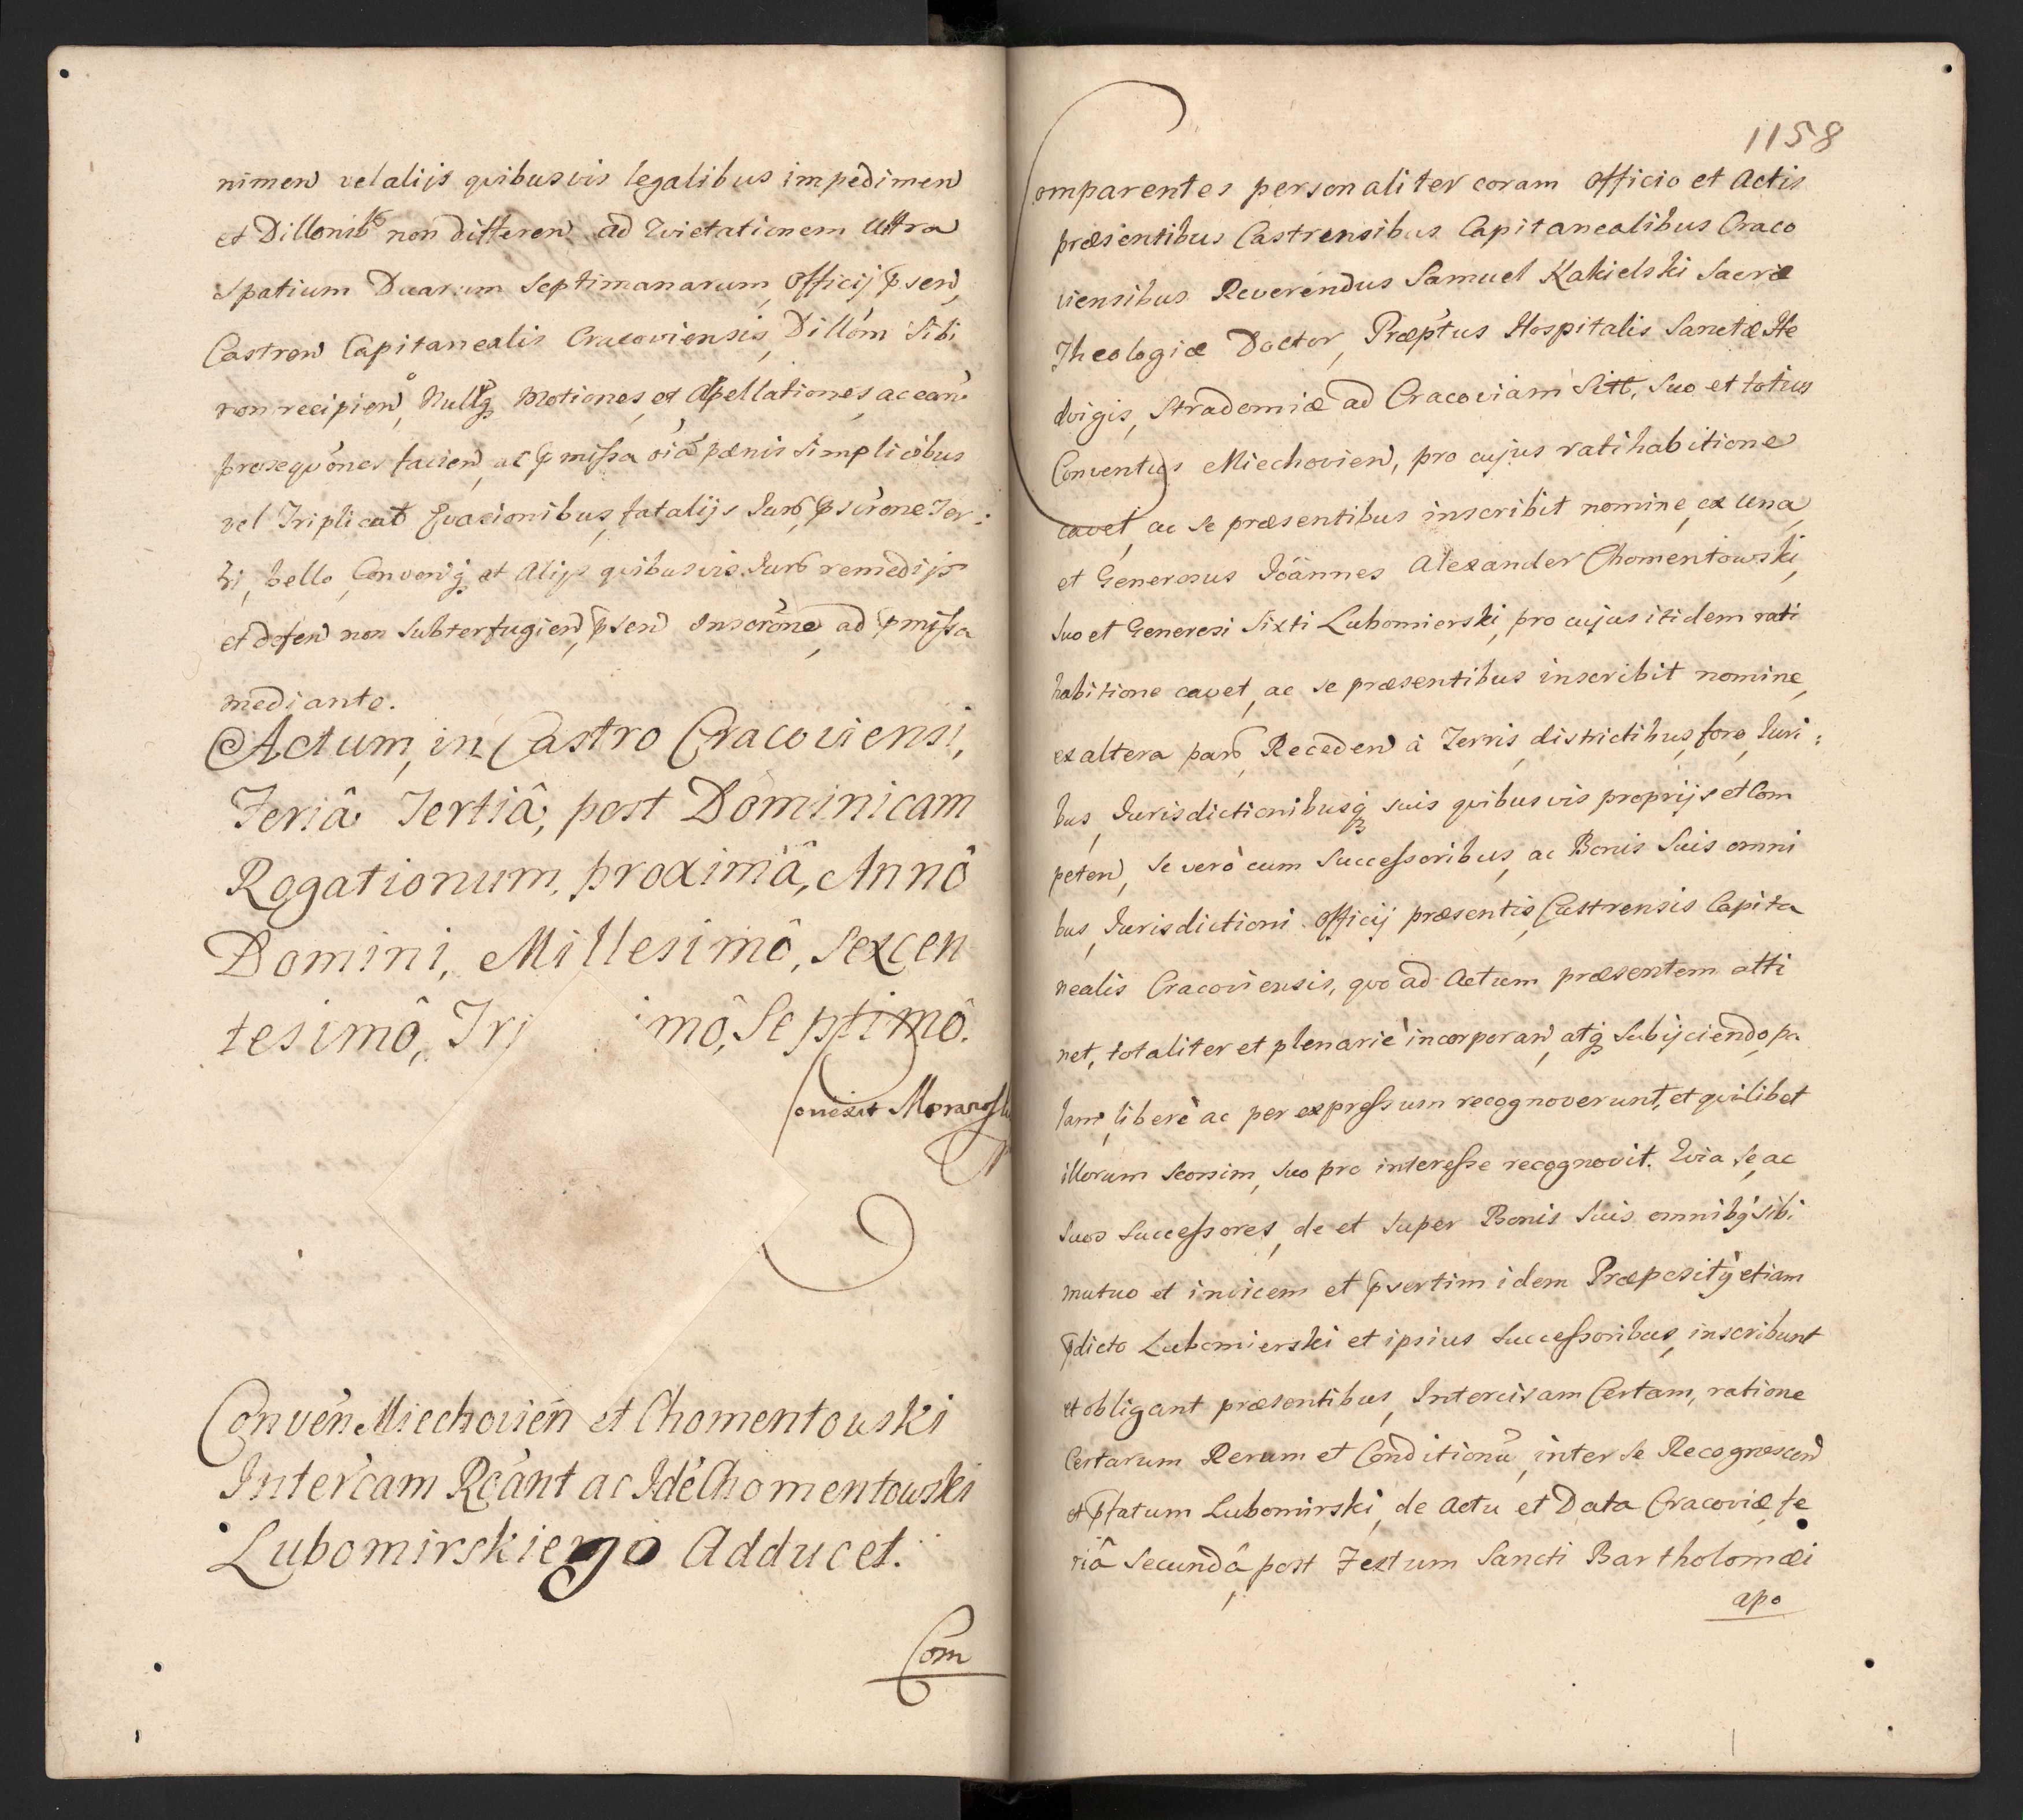 nimen vel alijs quibusvis legalibus impedimen
et Dillonib9 non differen ad Evictationem Ultra
Spatium Duarum Septimanarum, Officij psen,
Castren Capitanealis Cracoviensis, Dillom Sibi
non recipien, Nullasq Motiones, et Apellationes, ac earu
prosequones facien, ac pmissa oia paenis simplicibus
vel Triplicat Evasionibus, fatalijs Juro, pscrone Ter:
ri, bello, Convoniq et Alijs quibusvis Juro remedijs
et defen non subterfugien, psen Inscrone, ad pmissa
mediante.
Actum, in Castro Cracoviensi,
Feriâ Tertiâ, post Dominicam
Rogationum, proximâ, Annô
Domini, Millesimô, Sexcen
tesimô, Tri mô, Septimô.
Convén Miechovien et Chomentowski
Intercam Rcánt ac Idé Chomentowski
Lubomirskiego Adducet.
Com
1158
omparentes personaliter coram Officio et Actis
præsentibus Castrensibus Capitanealibus Craco
viensibus Reverendus Samuel Kakielski Sacræ
Theologiæ Doctor, Præptus Hospitalis Sanctæ He
dvigis, Stradomiæ ad Cracoviam Sitt, Suo et totius
Conventus Miechovien, pro cujus ratihabitione
cavet, ac se præsentibus inscribit nomine, ex una,
et Generosus Joannes Alexander Chomentowski,
Suo et Generosi Sixti Lubomierski, pro cujus itidem rati
habitione cavet, ac se præsentibus inscribit nomine,
ex altera paro, Receden à Terris, districtibus, foro, Juri:
bus, Jurisdictionibusq suis quibusvis proprijs et Com
peten, Se verò cum Successoribus, ac Bonis Suis omni
bus, Jurisdictioni Officij præsentis, Castrensis Capita
nealis Cracoviensis, quo ad Actum præsentem atti
net, totaliter et plenariè incorporan, atq Subijciendo, pa
lam, liberè ac per expressum recognoverunt, et quilibet
illorum Seorsim, suo pro interesse recognovit. Qvia Se, ac
Suos Successores, de et Super Bonis Suis omnibq sibi
mutuo et invicem et psertim idem Præposit9 etiam
pdicto Lubomierski et ipsius Successoribus, inscribunt
et obligant præsentibus, Intercisam Certam, ratione
Certarum Rerum et Conditionu, inter Se Recognoscen
et pfatum Lubomirski, de Actu et Data Cracoviæ, fe
riâ Secundâ, post Festum Sancti Bartholomæi
apo